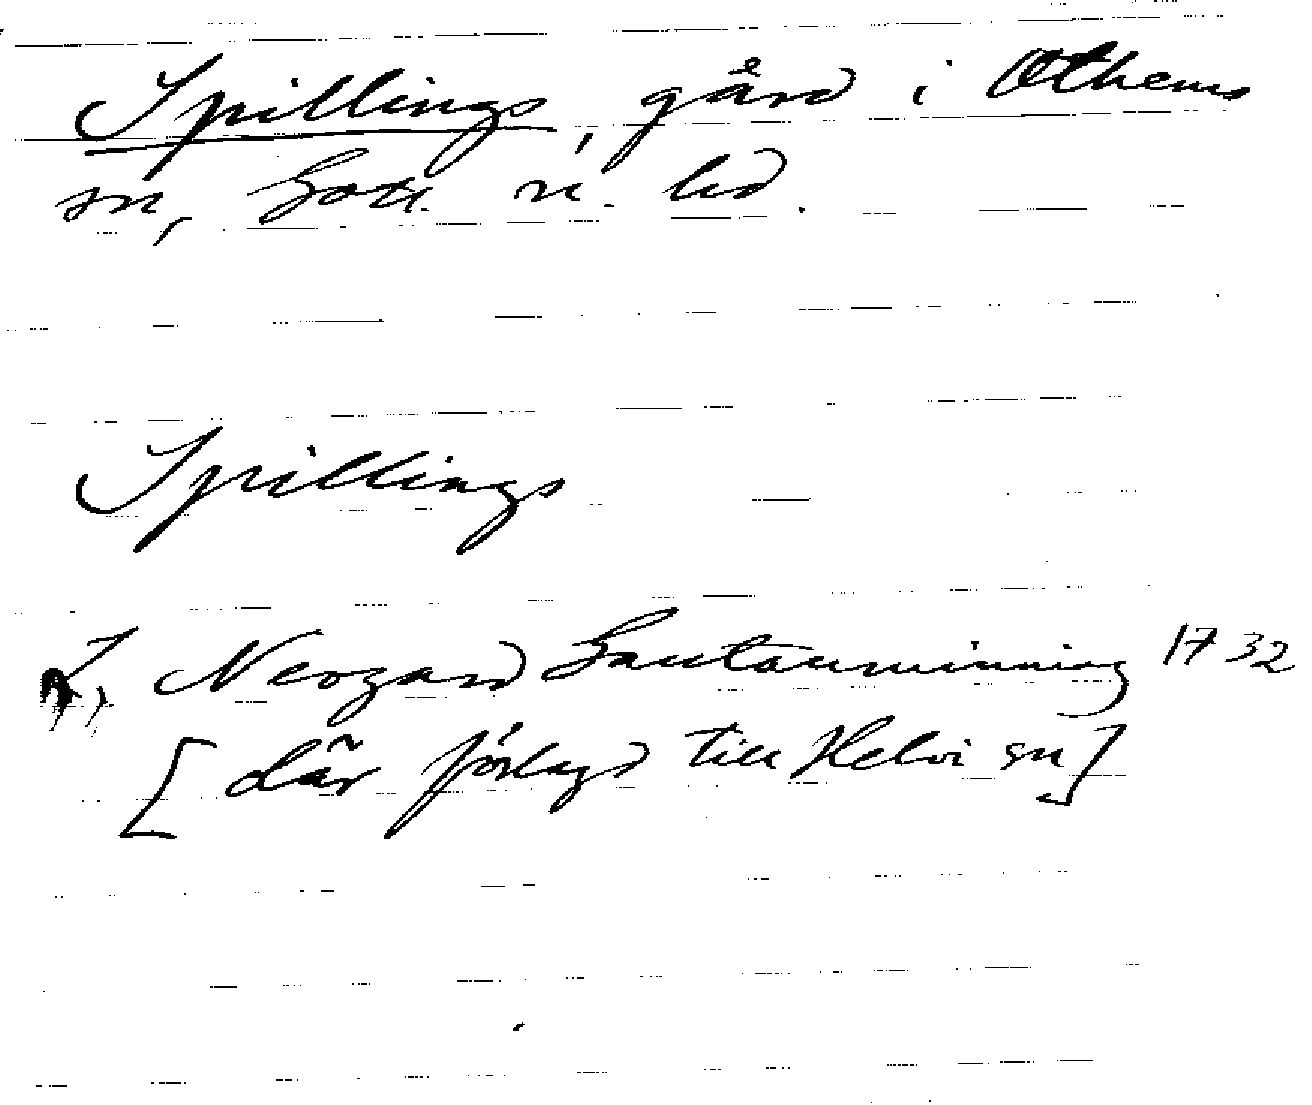 Spillings, gård i Othems
sn, Gotl. n. hd.
Spillings
J, Neogard Gautauminning 1732
[där förlagd till Helvi sn]